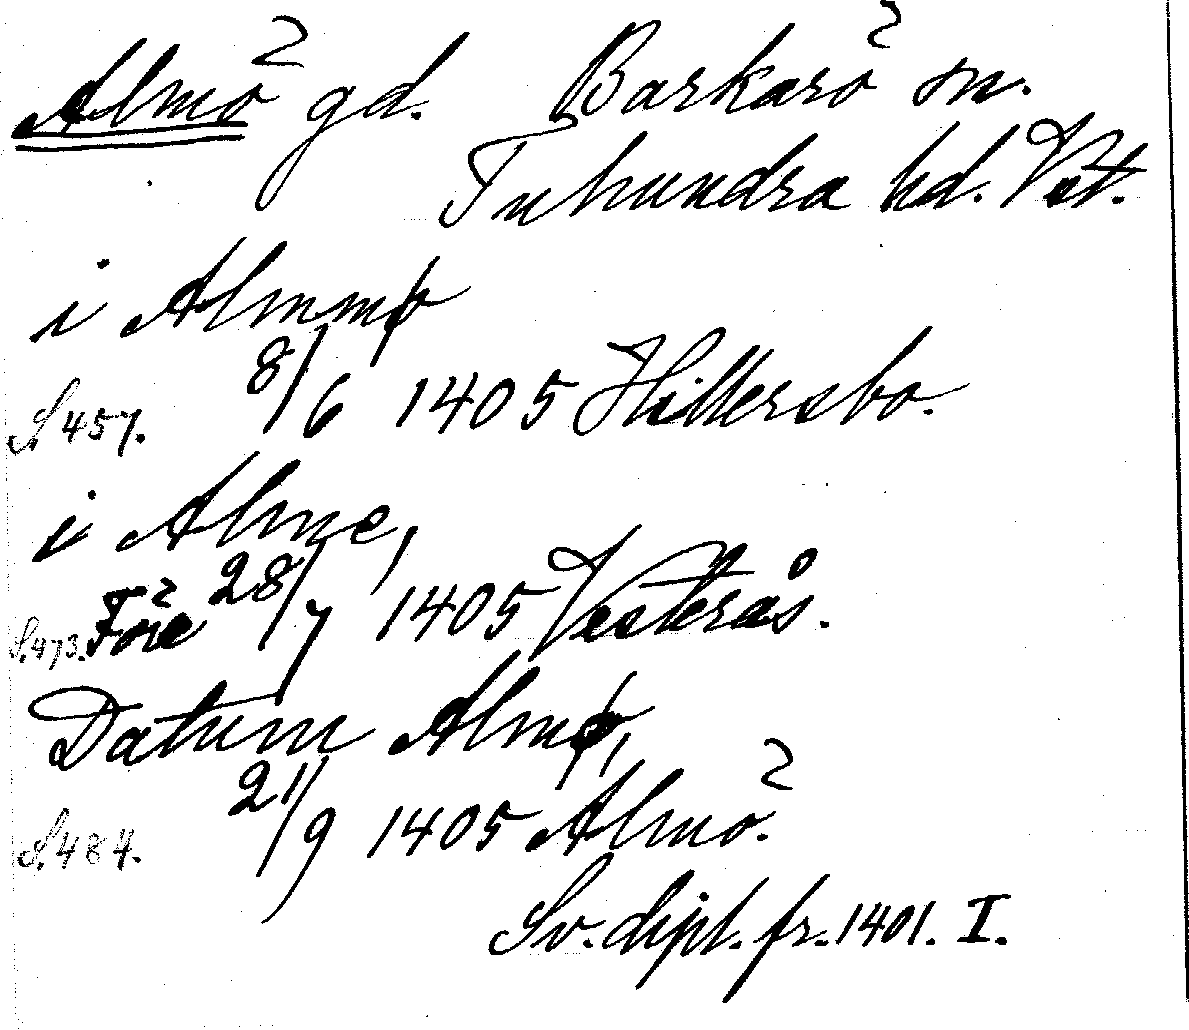 Almö gd. Barkarö sn.
Tuhundra hd. Vst.
i Almmø
S 457. 8/6 1405 Hillersbo.
i Alme,
S. 473. Före 28/7 1405 Vesterås.
Datum Almø,
S. 484. 21/9 1405 Almö.
Sv. dipl. fr. 1401. I.